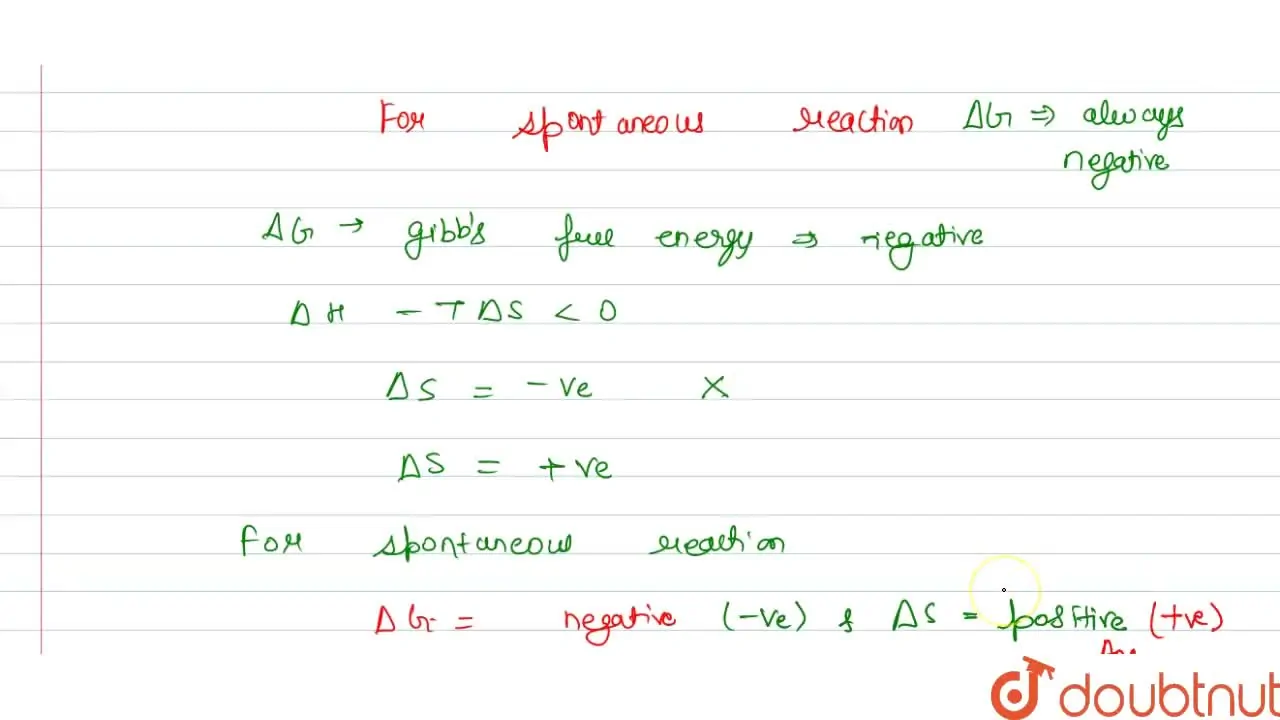 For spontaneous reaction ΔG ⇒ always
negative
ΔG → gibb's free energy ⇒ negative
ΔH - TΔS < 0
ΔS = -ve X
ΔS = +ve
For spontaneous reaction
ΔG = negative (-ve) & ΔS = positive (+ve)
doubtnut